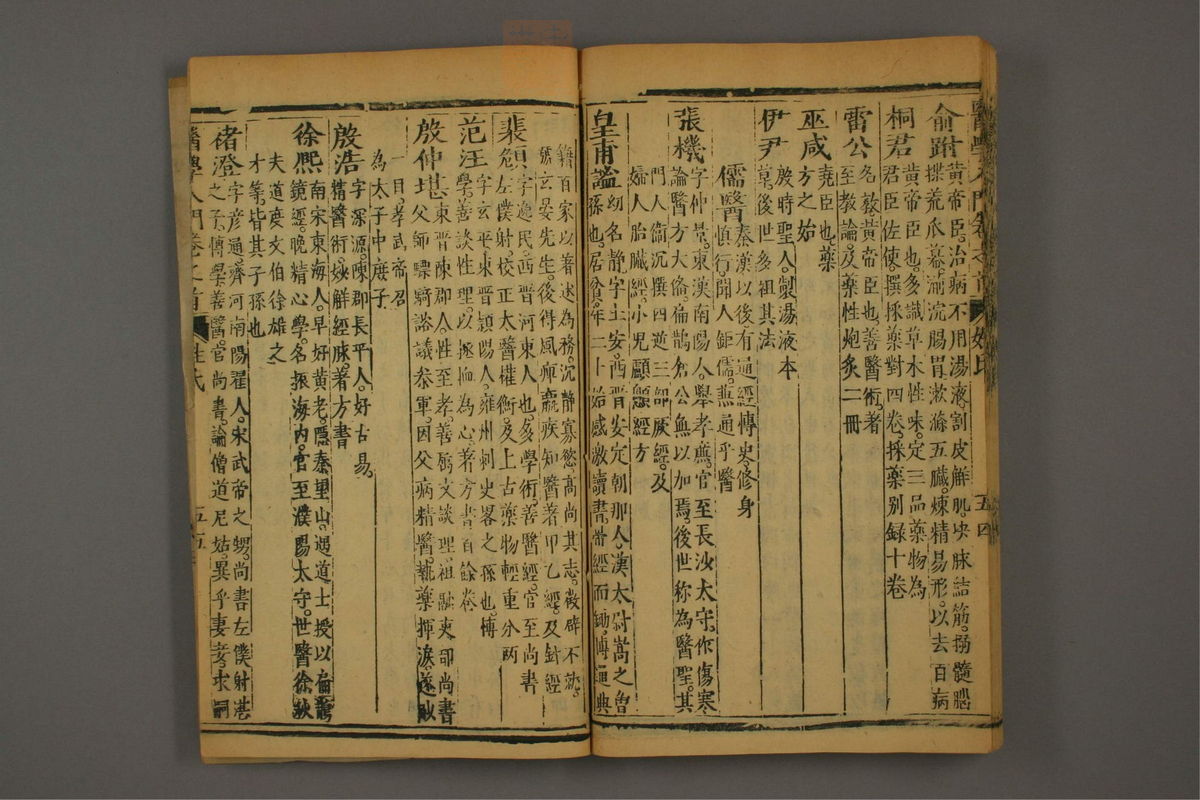 醫學入門卷之首 姓氏 五四
俞跗 黃帝臣治病不用湯液割皮解肌決脉結筋搦髓腦
揲荒爪幕湔浣腸胃漱滌五臟煉精易形以去百病
桐君 黃帝臣也多識草木性味定三品藥物為
君臣佐使撰採藥對四卷採藥別錄十卷
雷公 名斅黃帝臣也善醫術著
至教論及藥性炮炙二冊
巫咸 堯臣也藥
方之始
伊尹 殷時聖人製湯液本
草後世多祖其法
儒醫 秦漢以後有通經博史修身
慎行聞人鉅儒兼通乎醫
張機 字仲景東漢南陽人舉孝廉官至長沙太守作傷寒
論醫方大倫扁鵲倉公無以加焉後世稱為醫聖其
門人衛沉撰四逆三部厥經及
婦人胎臟經小兒顱顖經方
皇甫謐 幼名靜字士安西晋安定朝那人漢太尉嵩之曾
孫也居貧年二十始感激讀書帶經而鋤博通典
籍百家以著述為務沉靜寡慾高尚其志徵辟不就
號玄晏先生後得風痺羸疾知醫著甲乙經及針經
裴頠 字逸民西晋河東人也多學術善醫經官至尚書
左僕射校正太醫權衡及上古藥物輕重分兩
范汪 字玄平東晋潁陽人雍州刺史晷之孫也博
學善談性理以拯恤為心著方書百餘卷
殷仲堪 東晋陳郡人性至孝善屬文談理祖融吏部尚書
父師驃騎諮議參軍因父病精醫執藥揮淚遂眇
一目孝武帝召
為太子中庶子
殷浩 字深源陳郡長平人好古易
精醫術妙解經脉著方書
徐熙 南宋東海人早好黃老隱秦里山遇道士授以扁鵲
鏡經晚精心學名振海內官至濮陽太守世醫徐秋
夫道度文伯徐雄之
才等皆其子孫也
禇澄 字彥通齊河南陽翟人宋武帝之甥尚書左僕射湛
之子博學善醫官尚書論僧道尼姑異乎妻妾求嗣
醫學入門卷之首 姓氏 五五